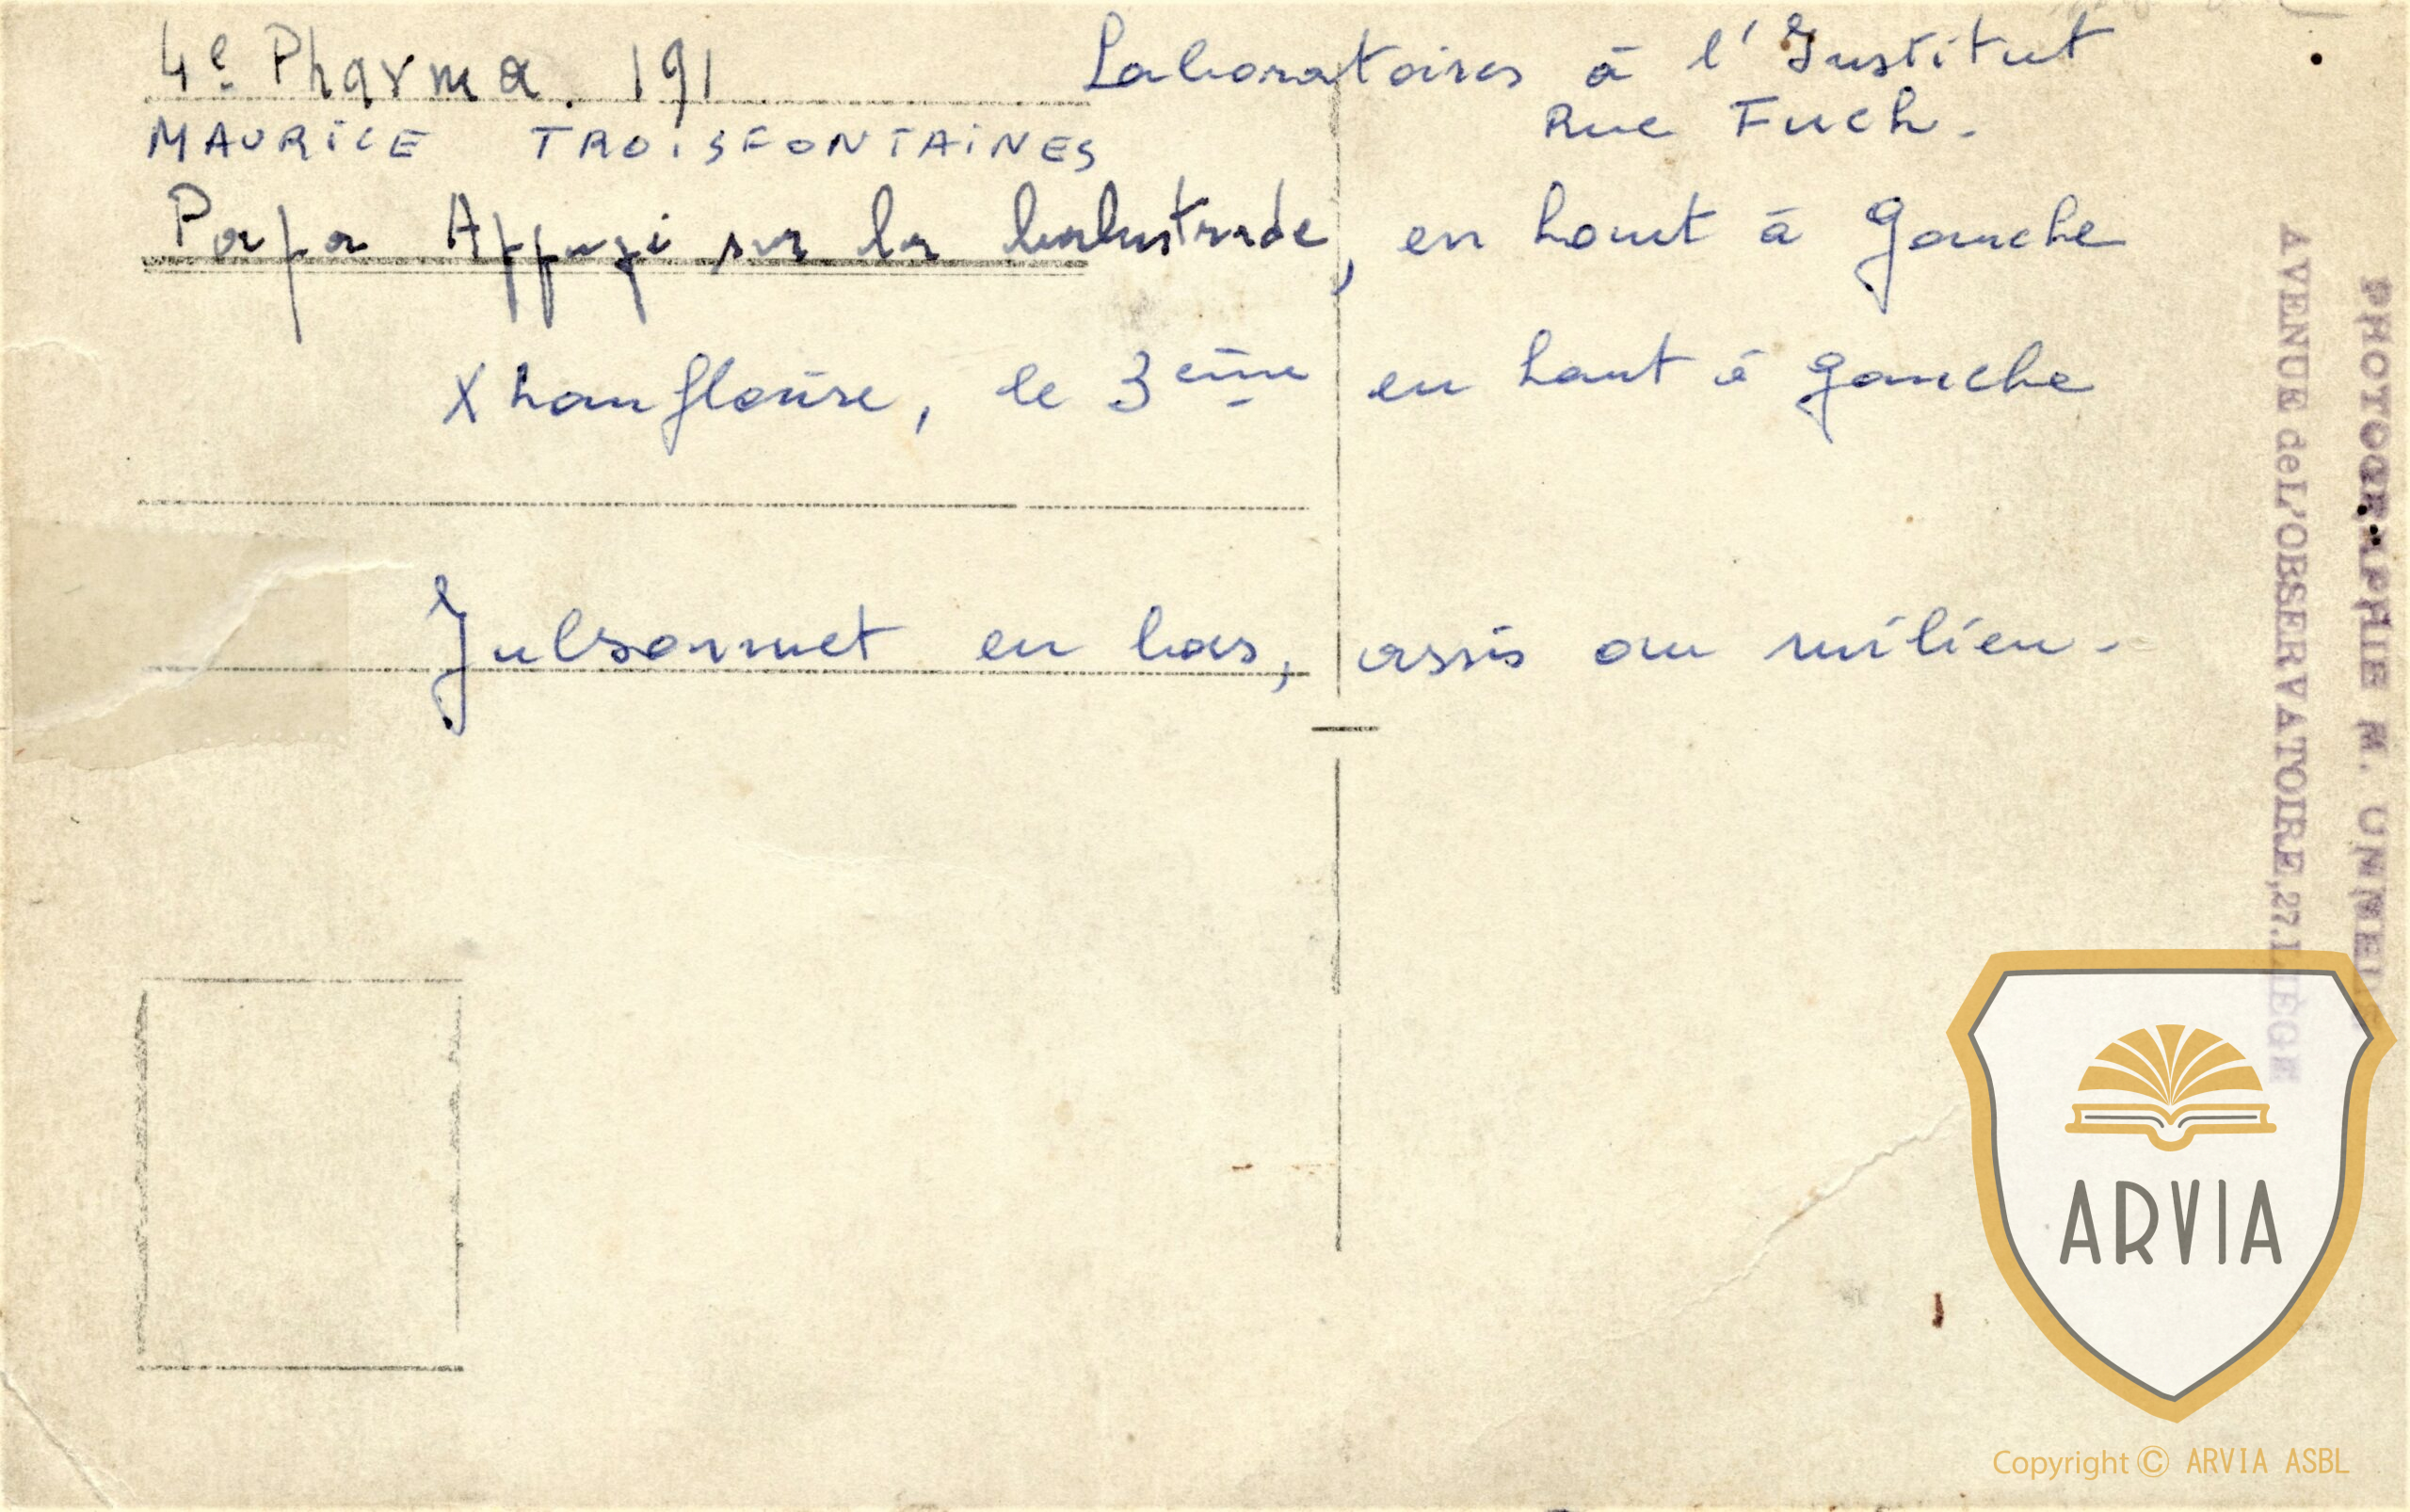 4e Pharma. 191
Laboratoires à l'Institut
Rue Fuch.
MAURICE TROISFONTAINES
Papa Appuyé sur la balustrade, en haut à gauche
Xhonflaire, le 3ème en haut à gauche
Julsonnet en bas, assis au milieu.
PHOTOGRAPHIE M.
AVENUE deL'OBSERVATOIRE,27.LIÈGE
ARVIA
Copyright © ARVIA ASBL